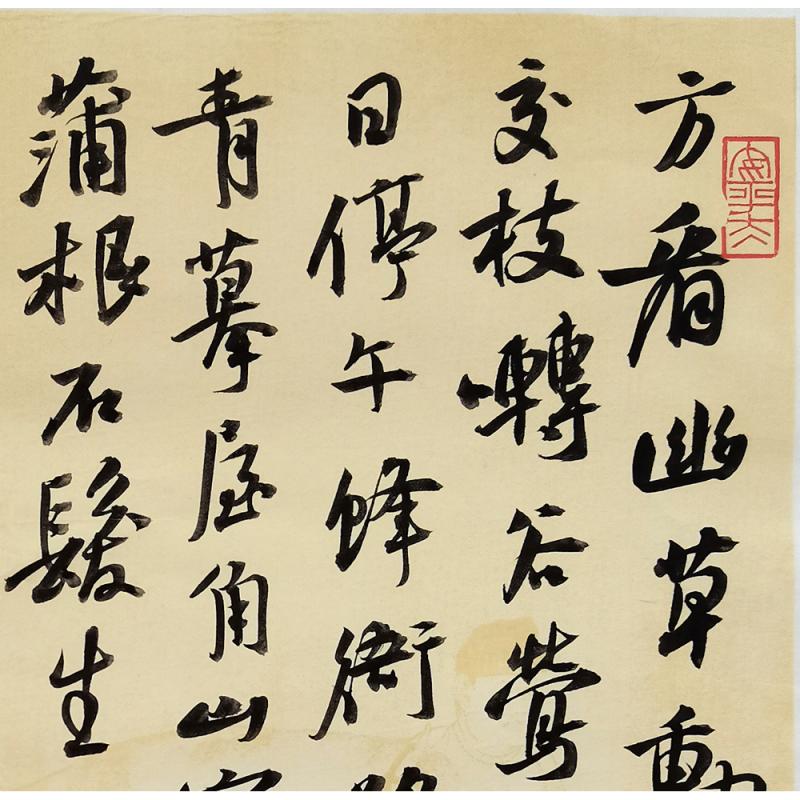 方看幽草動
交枝囀谷鶯
日停午蜂衙
青摹屋角山
蒲根石髮生